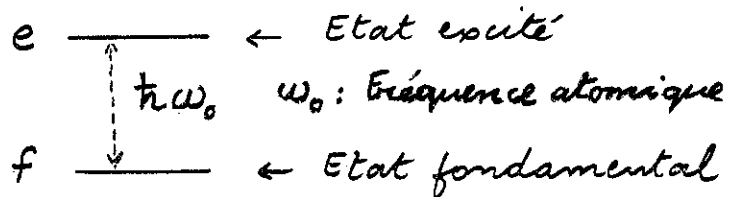 e ← Etat excité
ħω₀ ω₀ : Fréquence atomique
f ← Etat fondamental